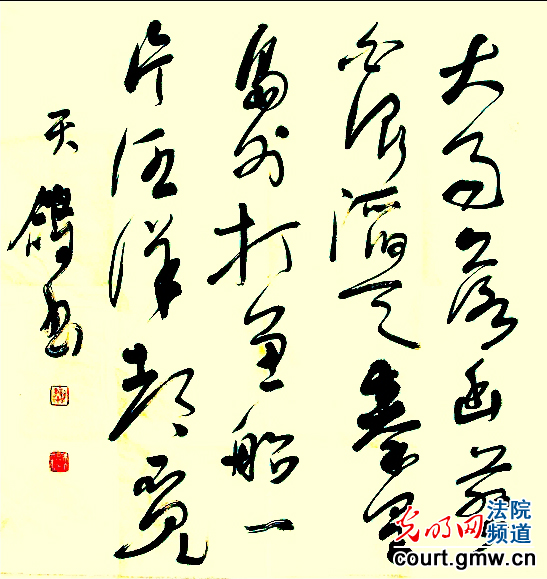 大雨落幽燕
白浪滔天秦皇
島外打魚船一
片汪洋都不見
天鴿书
光明网
法院
频道
court.gmw.cn